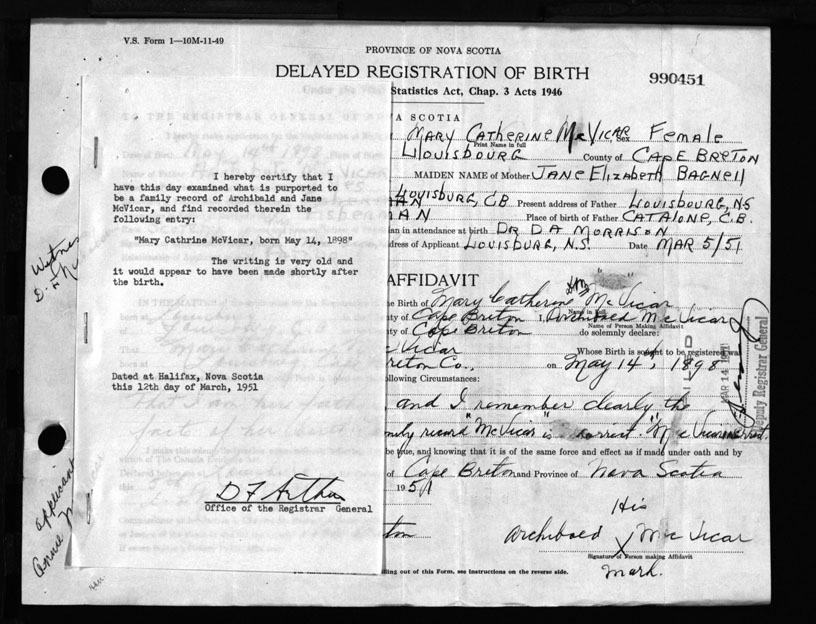 V.S. Form 1—10M-11-49
PROVINCE OF NOVA SCOTIA
DELAYED REGISTRATION OF BIRTH
990451
Statistics Act, Chap. 3 Acts 1946
A SCOTIA
MARY CATHERINE McVICAR Sex Female
Print Name in full
LOUISBOURG County of CAPE BRETON
MAIDEN NAME of Mother JANE ELIZABETH BAGNELL
LOUISBURG, C.B. Present address of Father LOUISBOURG, N.S
MAN Place of birth of Father CATALONE, C.B.
ian in attendance at birth DR D A MORRISON
dress of Applicant LOUISBURG, N.S. Date MAR 5/51
I hereby certify that I
have this day examined what is purported to
be a family record of Archibald and Jane
McVicar, and find recorded therein the
following entry:
"Mary Cathrine McVicar, born May 14, 1898"
The writing is very old and
it would appear to have been made shortly after
the birth.
Dated at Halifax, Nova Scotia
this 12th day of March, 1951
D F Arthur
Office of the Registrar General
AFFIDAVIT
he Birth of Mary Catherine McVicar
Name in full
ty of Cape Breton I, Archibald McVicar
Name of Person Making Affidavit
ty of Cape Breton do solemnly declare:
cVicar Whose Birth is sought to be registered was
reton Co., on May 14th, 1898
ollowing Circumstances:
and I remember clearly the
fact of her
mily record "McVicar" is correct.
be true, and knowing that it is of the same force and effect as if made under oath and by
of Cape Breton and Province of Nova Scotia
1951
His
ton Archibald X McVicar
Signature of Person making Affidavit
mark.
lling out of this Form, see Instructions on the reverse side.
Witness
D. F
applicant
Annie
FILED
MAR 14 1951
Deputy Registrar General